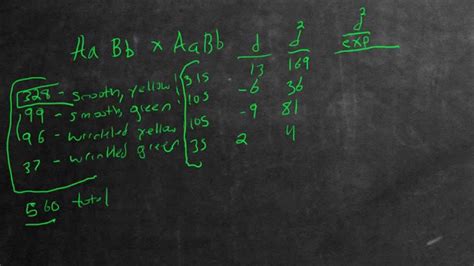 Aa Bb x AaBb d d² d²/exp
328 - smooth, yellow 315 13 169
99 - smooth, green 105 -6 36
96 - wrinkled yellow 105 -9 81
37 - wrinkled green 35 2 4
560 total